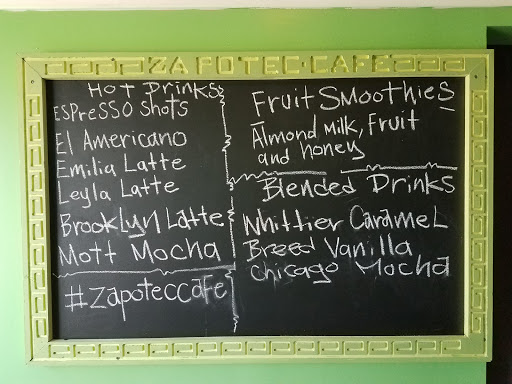 ZAPOTEC·CAFE
Hot Drinks
ESPRESSO Shots
El Americano
Emilia Latte
Leyla Latte
Brooklyn Latte
Mott Mocha
#zapoteccafe
Fruit Smoothies
Almond milk, fruit
and honey
Blended Drinks
Whittier Caramel
Breed Vanilla
Chicago Mocha